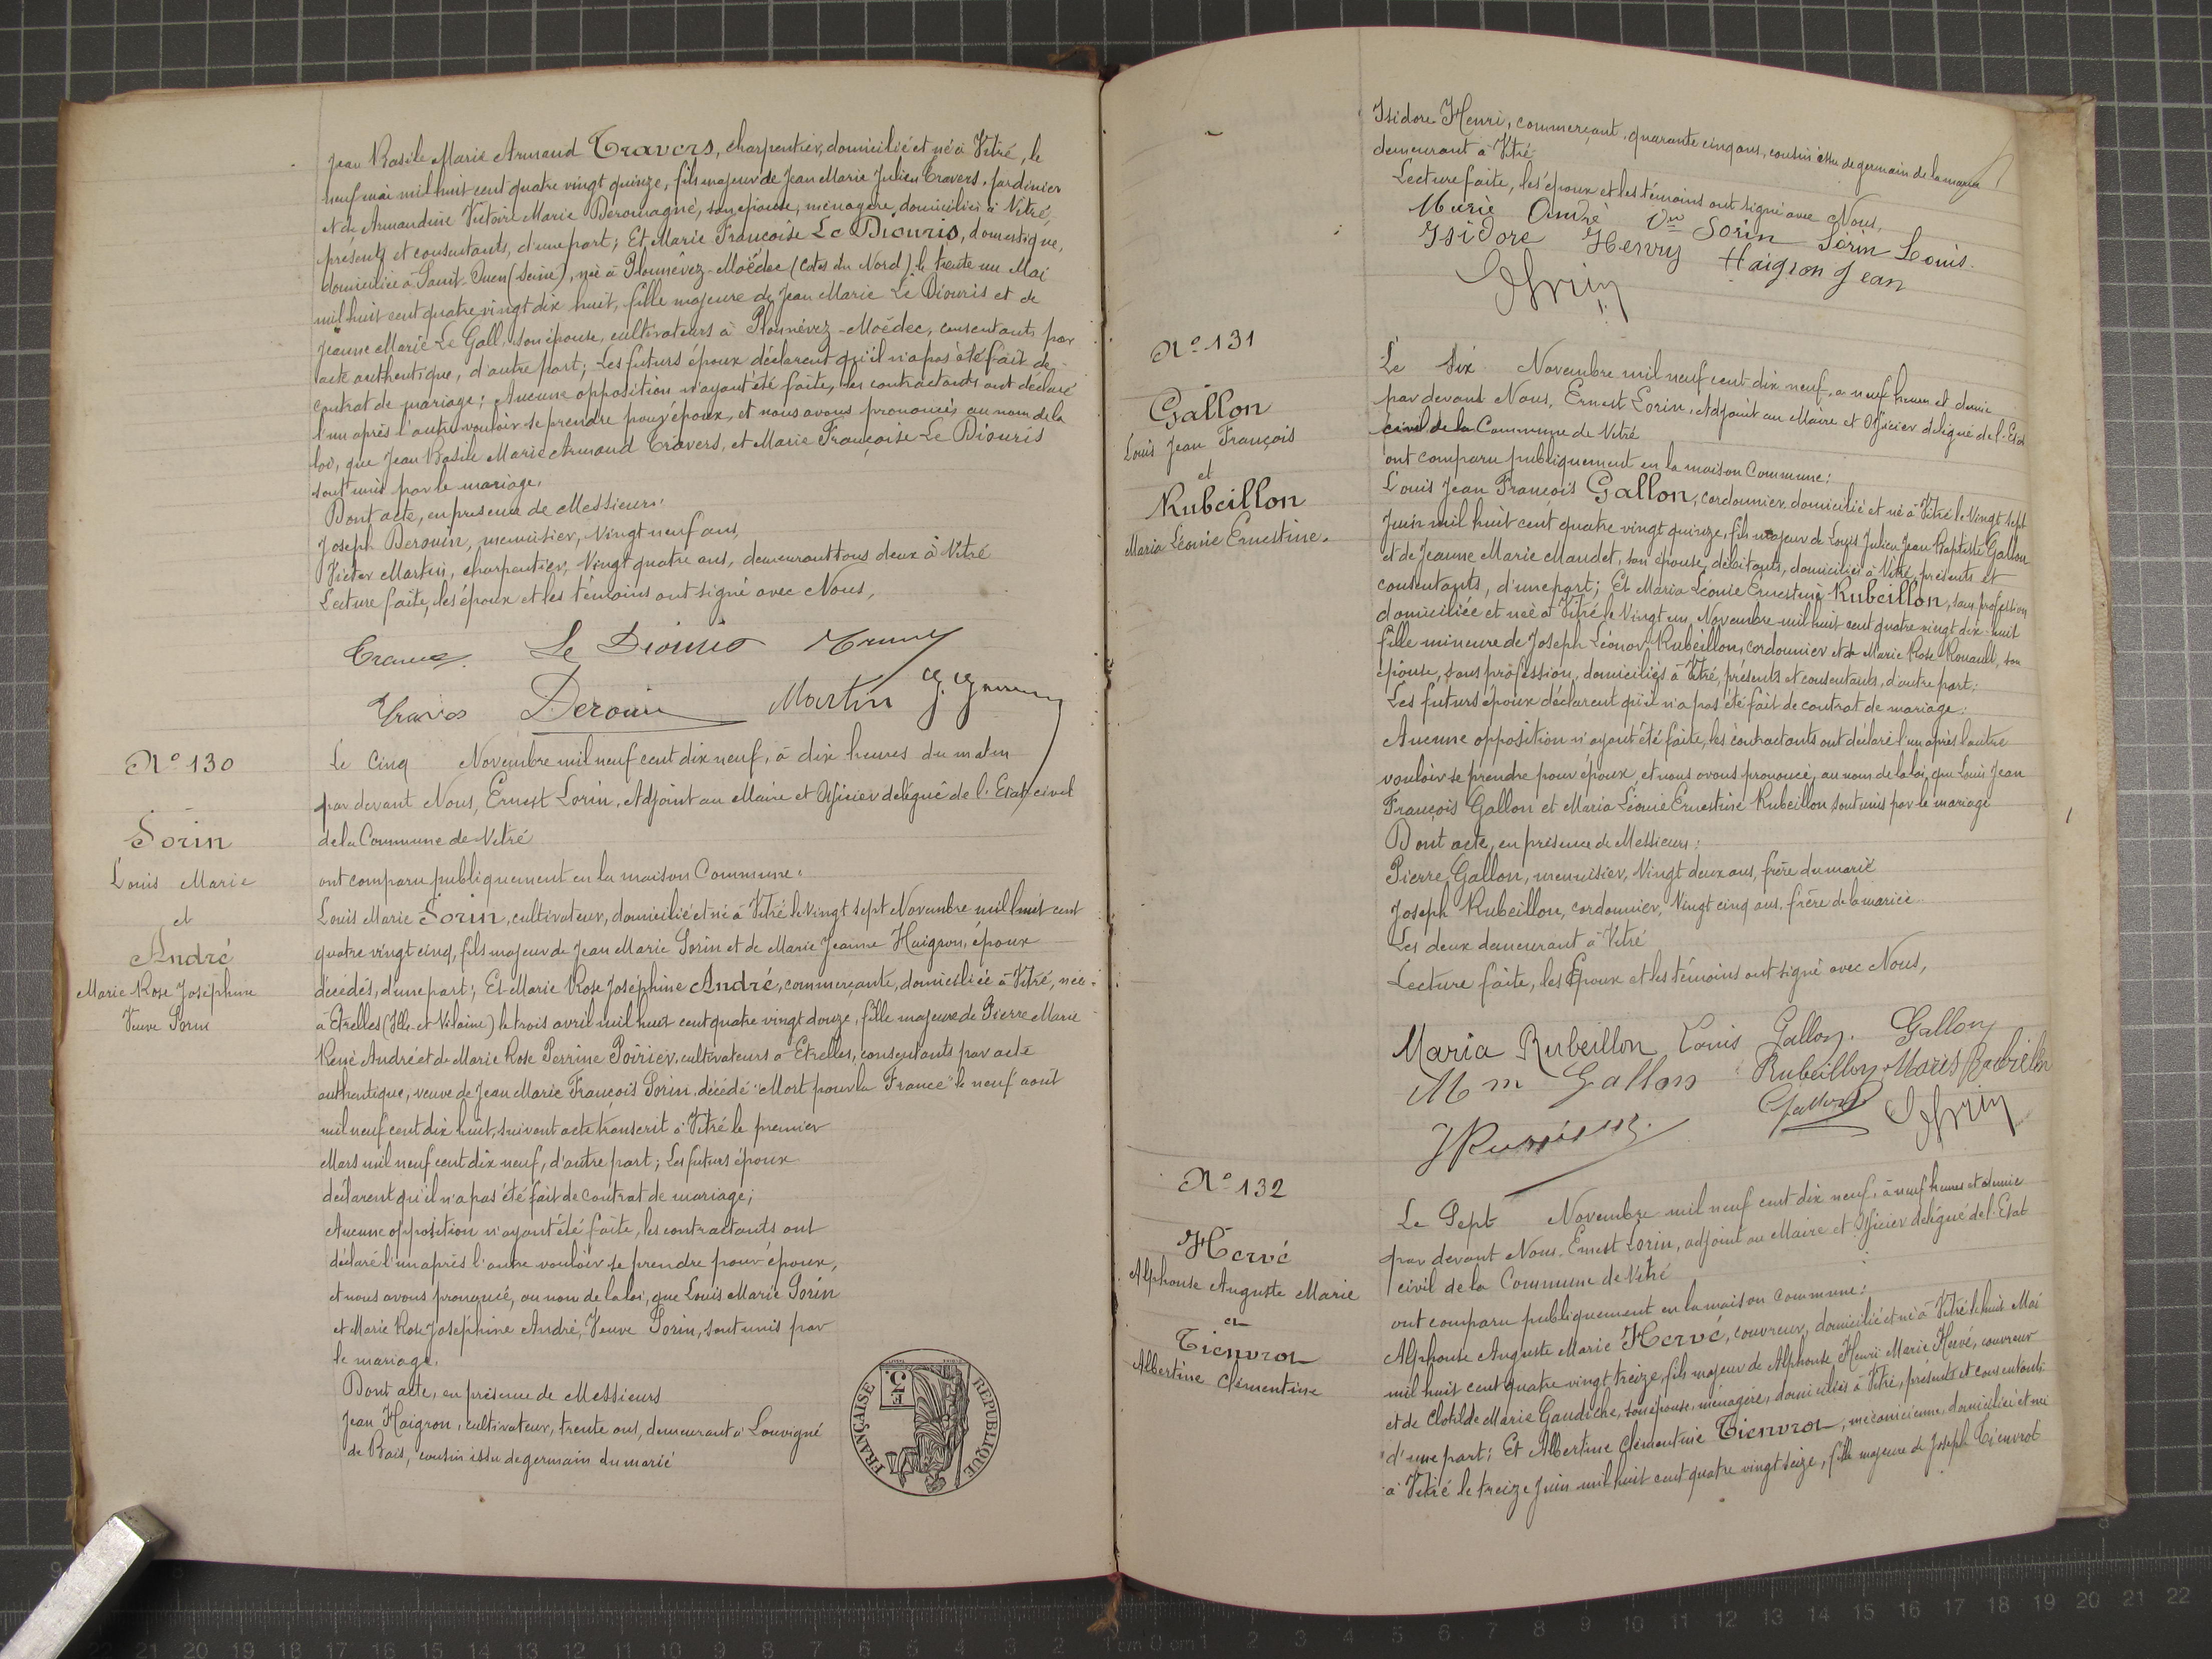 Jean Basile Marie Armand Travers, charpentier, domicilié et né à Vitré, le
neuf mai mil huit cent quatre vingt quinze, fils majeur de Jean Marie Julien Travers, jardinier
et de Armandine Victoire Marie Deromagné, son épouse, ménagère, domiciliés à Vitré,
présents et consentants, d'une part; Et Marie Françoise Le Diouris, domestique,
domiciliée à Saint-Ouen (Seine), née à Plounévez-Moëdec (Côtes du Nord) le trente un Mai
mil huit cent quatre vingt dix huit, fille majeure de Jean Marie Le Diouris et de
Jeanne Marie Le Gall, son épouse, cultivateurs à Plounévez-Moëdec, consentants par
acte authentique, d'autre part; Les futurs époux déclarent qu'il n'a pas été fait de
contrat de mariage; Aucune opposition n'ayant été faite, les contractants ont déclaré
l'un après l'autre vouloir se prendre pour époux, et nous avons prononcés au nom de la
loi, que Jean Basile Marie Armand Travers, et Marie Françoise Le Diouris
sont unis par le mariage.
Dont acte, en présence de Messieurs:
Joseph Derouin, menuisier, Vingt neuf ans,
Victor Martin, charpentier, Vingt quatre ans, demeurant tous deux à Vitré
Lecture faite, les époux et les témoins ont signé avec Nous,
Travers Le Diouris
Travers Derouin Martin
N° 130
Sorin
Louis Marie
et
André
Marie Rose Joséphine
Veuve Sorin
Le Cinq Novembre mil neuf cent dix neuf, à dix heures du matin
par devant Nous, Ernest Lorin, Adjoint au Maire et Officier délégué de l'Etat civil
de la Commune de Vitré
ont comparu publiquement en la maison Commune:
Louis Marie Sorin, cultivateur, domicilié et né à Vitré le Vingt sept Novembre mil huit cent
quatre vingt cinq, fils majeur de Jean Marie Sorin et de Marie Jeanne Haigron, époux
décédés, d'une part; Et Marie Rose Joséphine André, commerçante, domiciliée à Vitré, née
à Etrelles (Ille-et-Vilaine) le trois avril mil huit cent quatre vingt douze, fille majeure de Pierre Marie
René André et de Marie Rose Perrine Poirier, cultivateurs à Etrelles, consentants par acte
authentique, veuve de Jean Marie François Sorin, décédé "Mort pour la France" le neuf août
mil neuf cent dix huit, suivant acte transcrit à Vitré le premier
Mars mil neuf cent dix neuf, d'autre part; Les futurs époux
déclarent qu'il n'a pas été fait de contrat de mariage;
Aucune opposition n'ayant été faite, les contractants ont
déclaré l'un après l'autre vouloir se prendre pour époux,
et nous avons prononcé, au nom de la loi, que Louis Marie Sorin
et Marie Rose Joséphine André, Veuve Sorin, sont unis par
le mariage.
Dont acte, en présence de Messieurs
Jean Haigron, cultivateur, trente ans, demeurant à Louvigné
de Bais, cousin issu de germain du marié
RÉPUBLIQUE FRANÇAISE
Isidore Henri, commerçant, quarante cinq ans, cousin issu de germain de la mariée
demeurant à Vitré
Lecture faite, les époux et les témoins ont signé avec Nous,
Marie André Vve Sorin Sorin Louis
Isidore Henry Haigron Jean
N° 131
Gallon
Louis Jean François
et
Rubeillon
Maria Léonie Ernestine.
Le Six Novembre mil neuf cent dix neuf, à neuf heures et demie
par devant Nous, Ernest Lorin, Adjoint au Maire et Officier délégué de l'Etat
civil de la Commune de Vitré
ont comparu publiquement en la maison Commune:
Louis Jean François Gallon, cordonnier, domicilié et né à Vitré le Vingt sept
Juin mil huit cent quatre vingt quinze, fils majeur de Louis Julien Jean Baptiste Gallon
et de Jeanne Marie Maudet, son épouse, débitants, domiciliés à Vitré, présents et
consentants, d'une part; Et Maria Léonie Ernestine Rubeillon, sans profession
domiciliée et née à Vitré le Vingt un Novembre mil huit cent quatre vingt dix-huit
fille mineure de Joseph Léonor Rubeillon, cordonnier et de Marie Rose Rouault, son
épouse, sans profession, domiciliés à Vitré, présents et consentants, d'autre part;
Les futurs époux déclarent qu'il n'a pas été fait de contrat de mariage:
Aucune opposition n'ayant été faite, les contractants ont déclaré l'un après l'autre
vouloir se prendre pour époux, et nous avons prononcé, au nom de la loi, que Louis Jean
François Gallon et Maria Léonie Ernestine Rubeillon sont unis par le mariage
Dont acte, en présence de Messieurs:
Pierre Gallon, menuisier, Vingt deux ans, frère du marié
Joseph Rubeillon, cordonnier, Vingt cinq ans, frère de la mariée
Les deux demeurant à Vitré
Lecture faite, les Epoux et les témoins ont signé avec Nous,
Maria Rubeillon Louis Gallon. Gallon
Mm Gallon Rubeillon
Gallon
N° 132
Hervé
Alphonse Auguste Marie
et
Tienvrot
Albertine Clémentine
Le Sept Novembre mil neuf cent dix neuf, à neuf heures et demie
par devant Nous, Ernest Lorin, adjoint au Maire et Officier délégué de l'Etat
civil de la Commune de Vitré
ont comparu publiquement en la maison Commune:
Alphonse Auguste Marie Hervé, couvreur, domicilié et né à Vitré le huit Mai
mil huit cent quatre vingt treize, fils majeur de Alphonse Henri Marie Hervé, couvreur
et de Clotilde Marie Gaudiche, son épouse, ménagère, domiciliés à Vitré, présents et consentants
d'une part; Et Albertine Clémentine Tienvrot, mécanicienne, domiciliée et née
à Vitré le treize Juin mil huit cent quatre vingt seize, fille majeure de Joseph Tienvrot